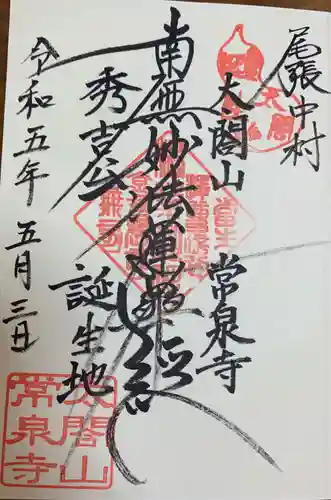 尾張中村
太閤山
常泉寺
南無妙法蓮華経
秀吉公
誕生地
令和五年五月三日
太閤山
常泉寺